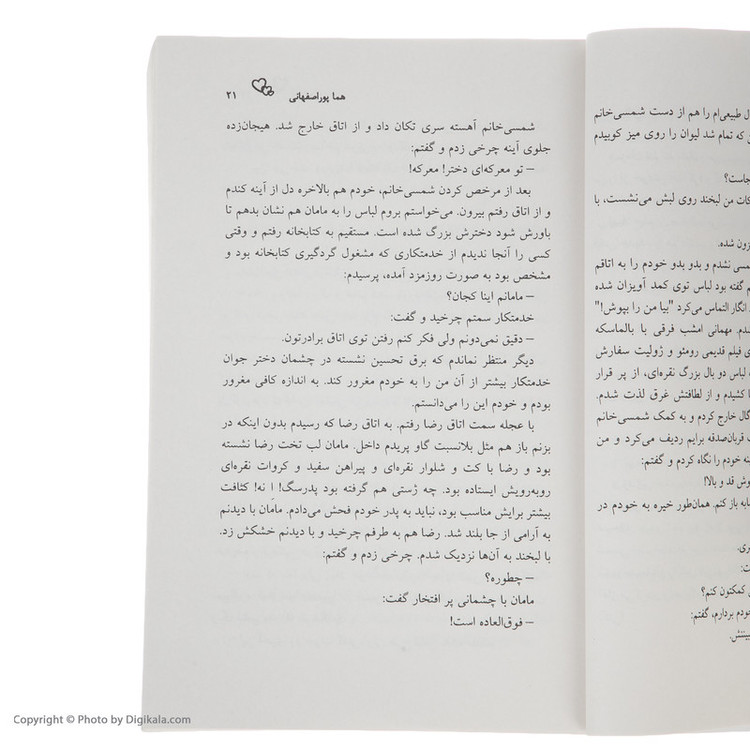 ل طبیعی‌ام را هم از دست شمسی‌خانم
ن که تمام شد لیوان را روی میز کوبیدم
جاست؟
کات من لبخند روی لبش می‌نشست، با
زون شده.
سی نشدم و بدو بدو خودم را به اتاقم
م گفته بود لباس توی کمد آویزان شده
د انگار التماس می‌کرد "بیا من را بپوش!"
دم. مهمانی امشب فرقی با بالماسکه
ی فیلم قدیمی رومئو و ژولیت سفارش
ه لباس دو بال بزرگ نقره‌ای، از پر قرار
ا کشیدم و از لطافتش غرق لذت شدم.
گال خارج کردم و به کمک شمسی‌خانم
ب قربان‌صدقه برایم ردیف می‌کرد و من
ینه خودم را نگاه کردم و گفتم:
وش قد و بالا!
ابه باز کنم. همان‌طور خیره به خودم در
ری.
ت:
ی کمکتون کنم؟
خودم بردارم، گفتم:
بینتش.
هما پوراصفهانی ۲۱
شمسی‌خانم آهسته سری تکان داد و از اتاق خارج شد. هیجان‌زده
جلوی آینه چرخی زدم و گفتم:
– تو معرکه‌ای دختر! معرکه!
بعد از مرخص کردن شمسی‌خانم، خودم هم بالاخره دل از آینه کندم
و از اتاق رفتم بیرون. می‌خواستم بروم لباس را به مامان هم نشان بدهم تا
باورش شود دخترش بزرگ شده است. مستقیم به کتابخانه رفتم و وقتی
کسی را آنجا ندیدم از خدمتکاری که مشغول گردگیری کتابخانه بود و
مشخص بود به صورت روزمزد آمده، پرسیدم:
– مامانم اینا کجان؟
خدمتکار سمتم چرخید و گفت:
– دقیق نمی‌دونم ولی فکر کنم رفتن توی اتاق برادرتون.
دیگر منتظر نماندم که برق تحسین نشسته در چشمان دختر جوان
خدمتکار بیشتر از آن من را به خودم مغرور کند. به اندازه کافی مغرور
بودم و خودم این را می‌دانستم.
با عجله سمت اتاق رضا رفتم. به اتاق رضا که رسیدم بدون اینکه در
بزنم باز هم مثل بلانسبت گاو پریدم داخل. مامان لب تخت رضا نشسته
بود و رضا با کت و شلوار نقره‌ای و پیراهن سفید و کروات نقره‌ای
روبه‌رویش ایستاده بود. چه ژستی هم گرفته بود پدرسگ! اِ نه! کثافت
بیشتر برایش مناسب بود، نباید به پدر خودم فحش می‌دادم. مامان با دیدنم
به آرامی از جا بلند شد. رضا هم به طرفم چرخید و با دیدنم خشکش زد.
با لبخند به آن‌ها نزدیک شدم. چرخی زدم و گفتم:
– چطوره؟
مامان با چشمانی پر افتخار گفت:
– فوق‌العاده است!
Copyright © Photo by Digikala.com